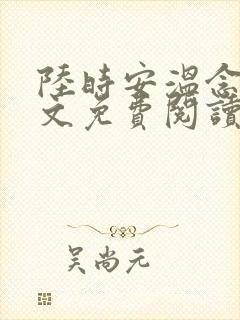 陸時安溫念
文免費閱讀
吴尚元